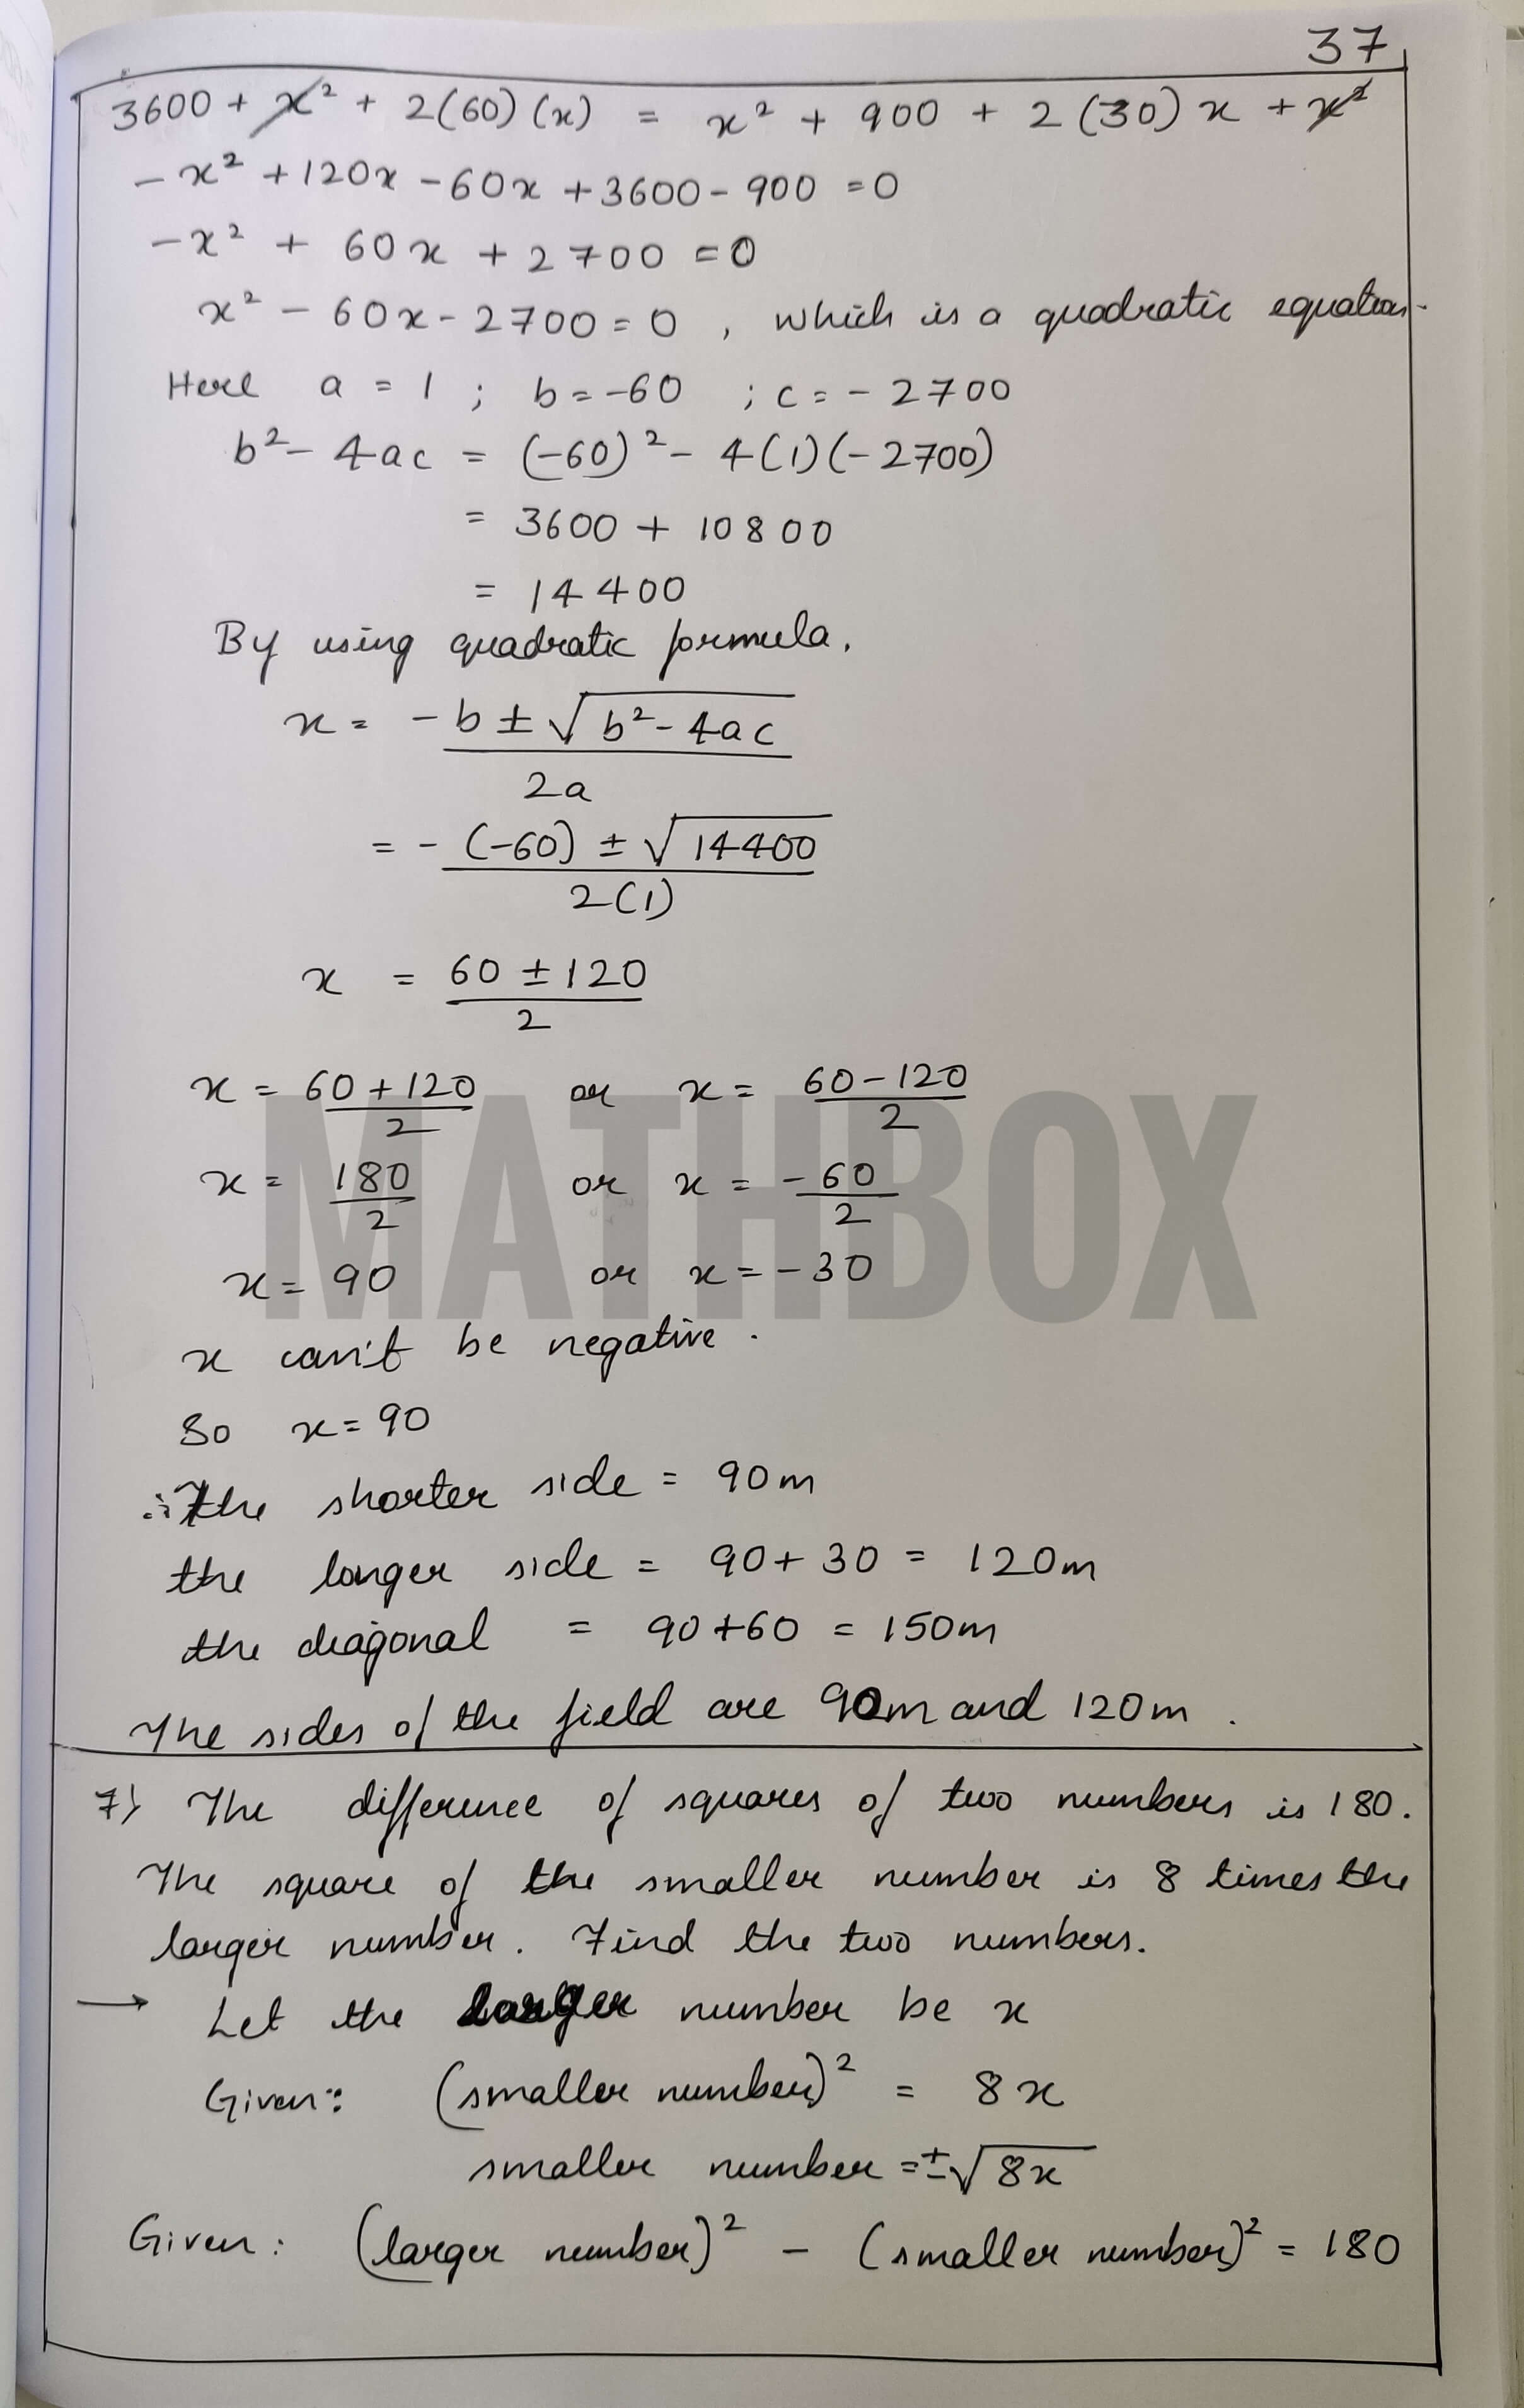 37
3600 + x² + 2(60)(x) = x² + 900 + 2(30)x + x²
-x² + 120x - 60x + 3600 - 900 = 0
-x² + 60x + 2700 = 0
x² - 60x - 2700 = 0, which is a quadratic equation.
Here a = 1 ; b = -60 ; c = -2700
b² - 4ac = (-60)² - 4(1)(-2700)
= 3600 + 10800
= 14400
By using quadratic formula,
x = -b ± √b² - 4ac
2a
= -(-60) ± √14400
2(1)
x = 60 ± 120
2
x = 60 + 120 or x = 60 - 120
2 2
x = 180 or x = -60
2 2
x = 90 or x = -30
MATHBOX
x can't be negative.
So x = 90
∴ The shorter side = 90m
the longer side = 90 + 30 = 120m
the diagonal = 90 + 60 = 150m
The sides of the field are 90m and 120m.
7) The difference of squares of two numbers is 180.
The square of the smaller number is 8 times the
larger number. Find the two numbers.
→ Let the larger number be x
Given: (smaller number)² = 8x
smaller number = ±√8x
Given: (larger number)² - (smaller number)² = 180